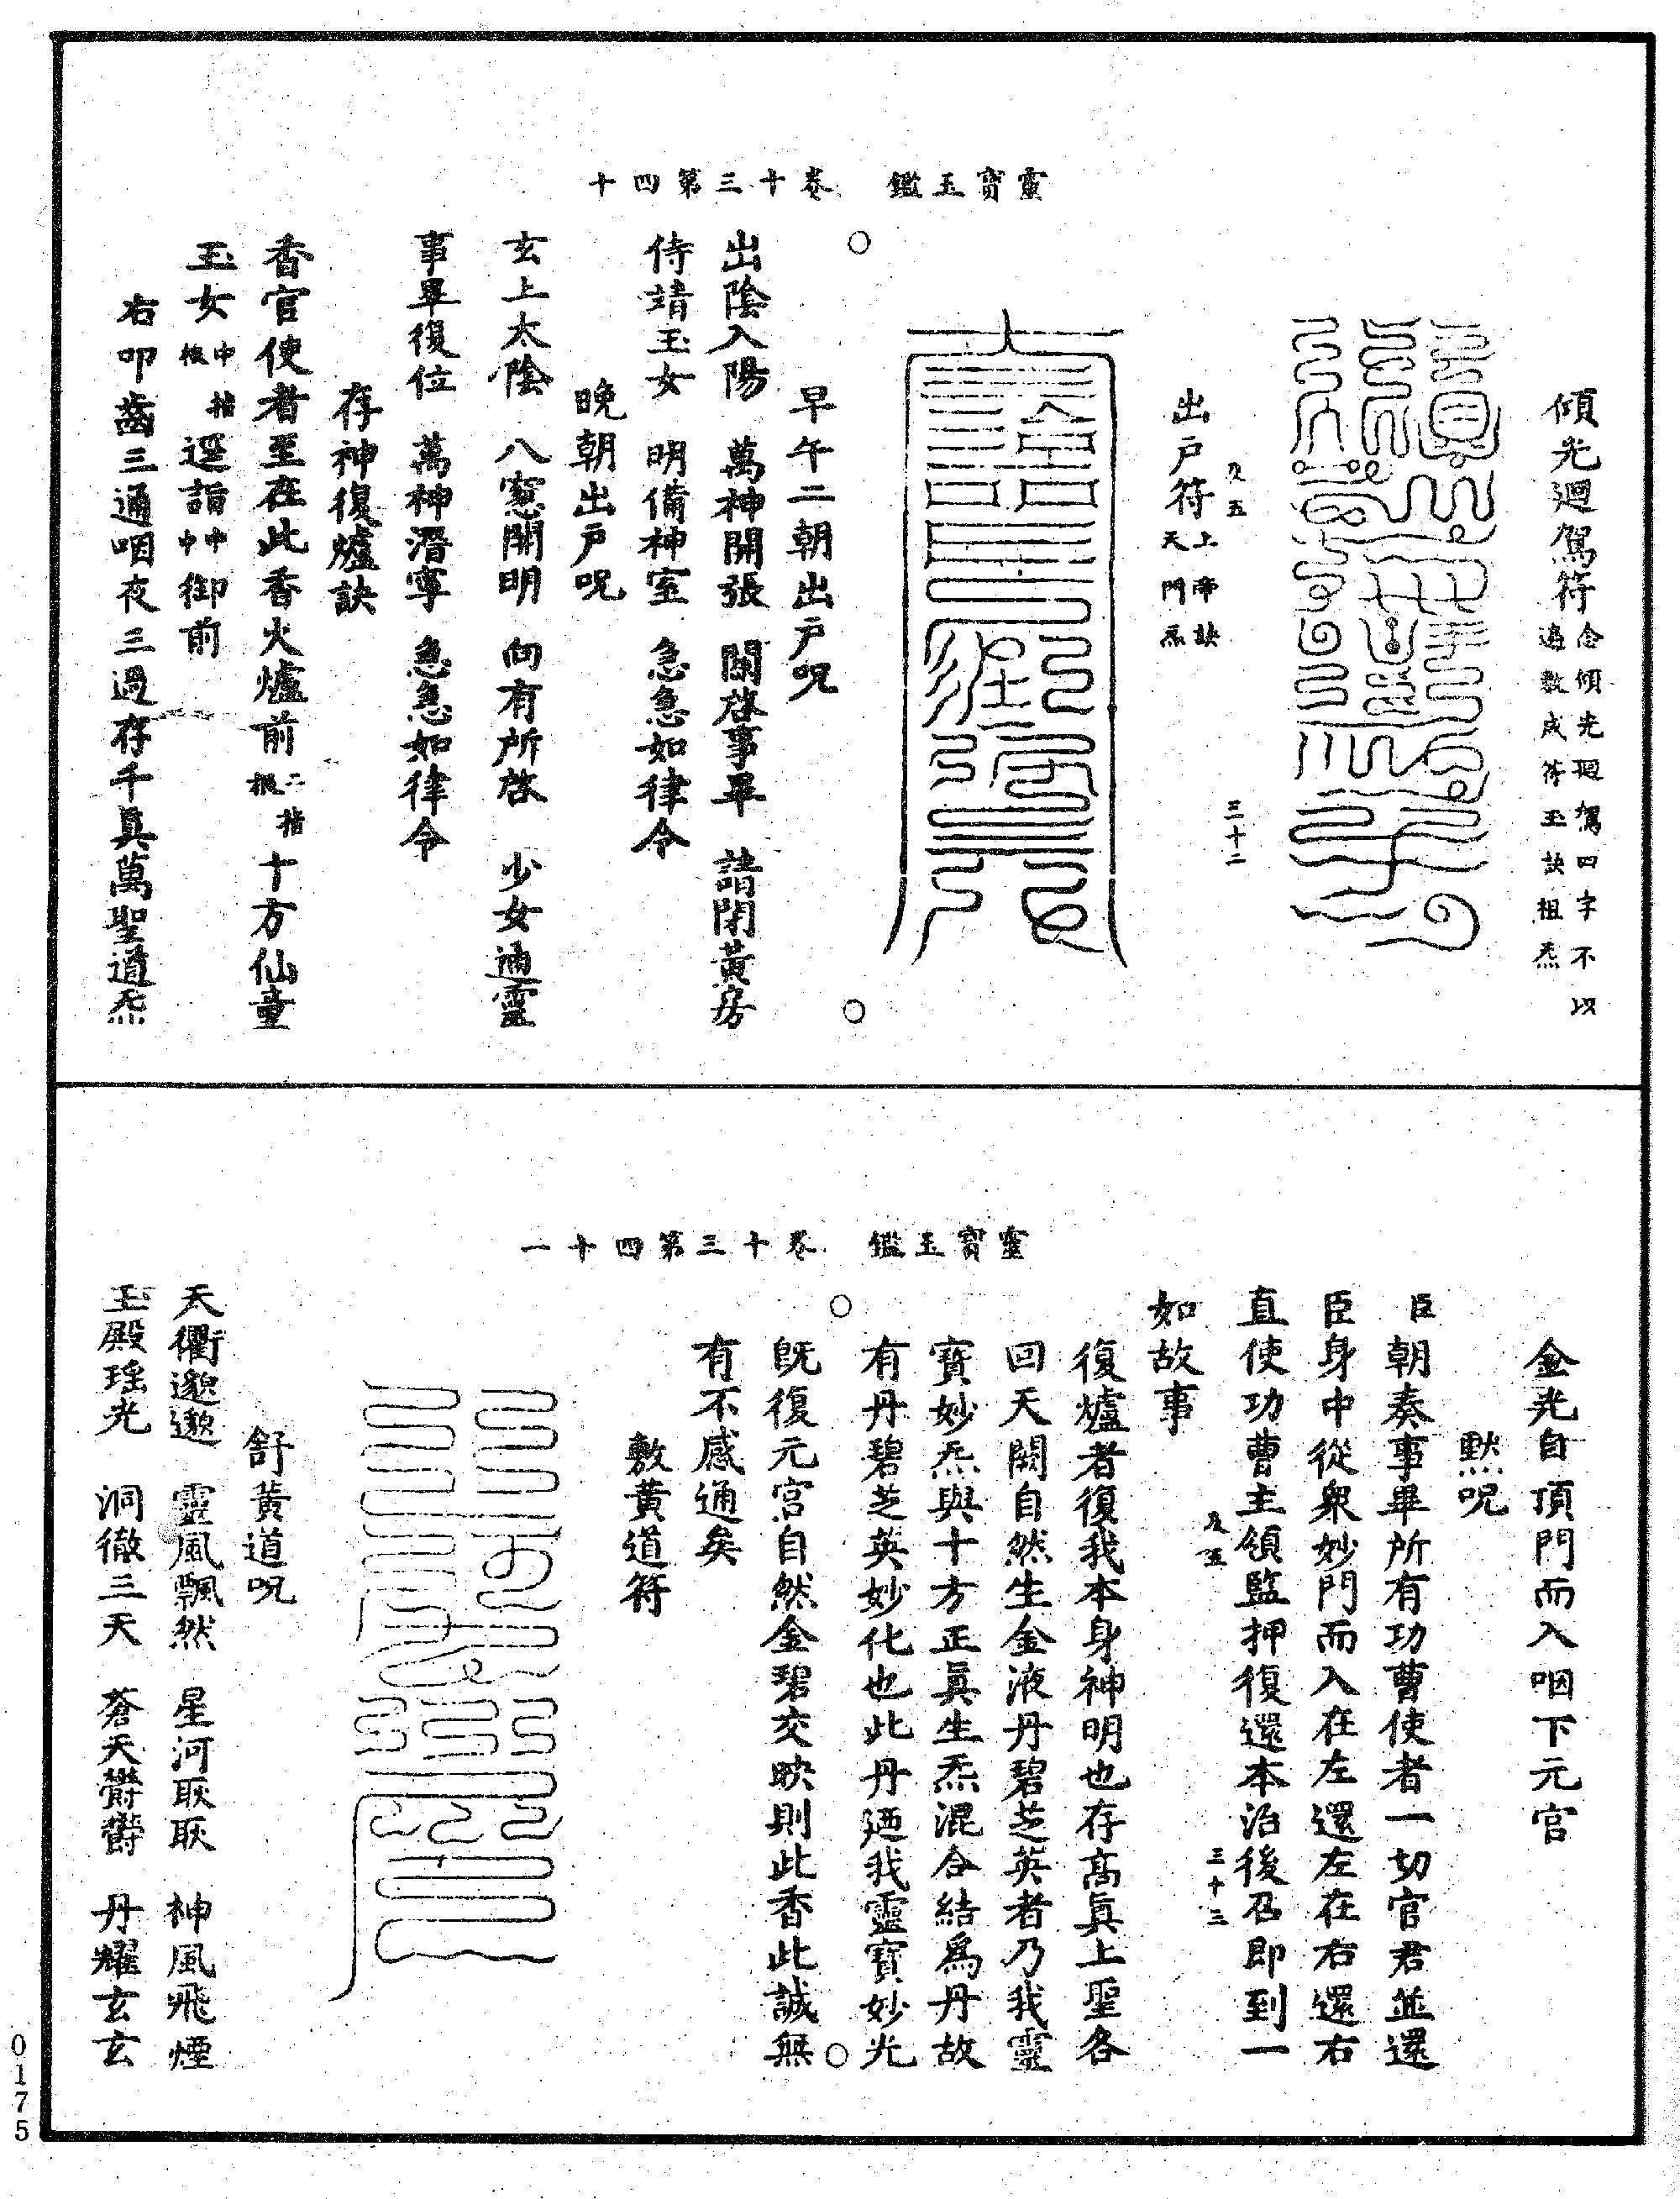 靈寶玉鑑　卷十三第四十
傾光迴駕符念傾光迴駕四字不以
遍數成符玉訣祖炁
出戶符上帝訣
天門炁
及五　三十二
早午二朝出戶呪
出陰入陽　萬神開張　關啓事畢　請閉黃房
侍靖玉女　明備神室　急急如律令
晚朝出戶呪
玄上太陰　八窻開明　向有所啓　少女通靈
事畢復位　萬神潛寧　急急如律令
存神復爐訣
香官使者至在此香火爐前二指根十方仙童
玉女中指根逕詣艸中御前
右叩齒三通咽夜三過存千眞萬聖道炁
靈寶玉鑑　卷十三第四十一
金光自頂門而入咽下元宮
默呪
臣朝奏事畢所有功曹使者一切官君並還
臣身中從衆妙門而入在左還左在右還右
直使功曹主領監押復還本治後召即到一
如故事
及五　三十三
復爐者復我本身神明也存高眞上聖各
回天闕自然生金液丹碧芝英者乃我靈
寶妙炁與十方正眞生炁混合結爲丹故
有丹碧芝英妙化也此丹迺我靈寶妙光
旣復元宮自然金碧交映則此香此誠無
有不感通矣
敷黃道符
舒黃道呪
天衢邈邈　靈風飄然　星河耿耿　神風飛煙
玉殿瑤光　洞徹三天　蒼天鬱鬱　丹耀玄玄
0175